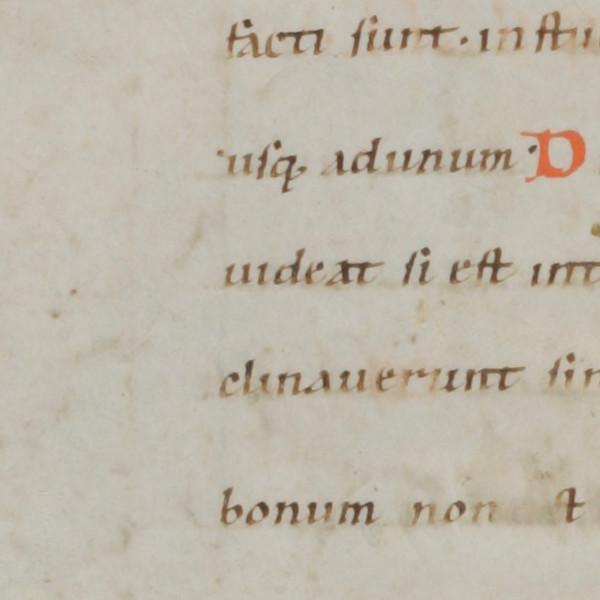 facti sunt· in stu
usq; adunum· D
uideat si est int
clinauerunt sim
bonum non st